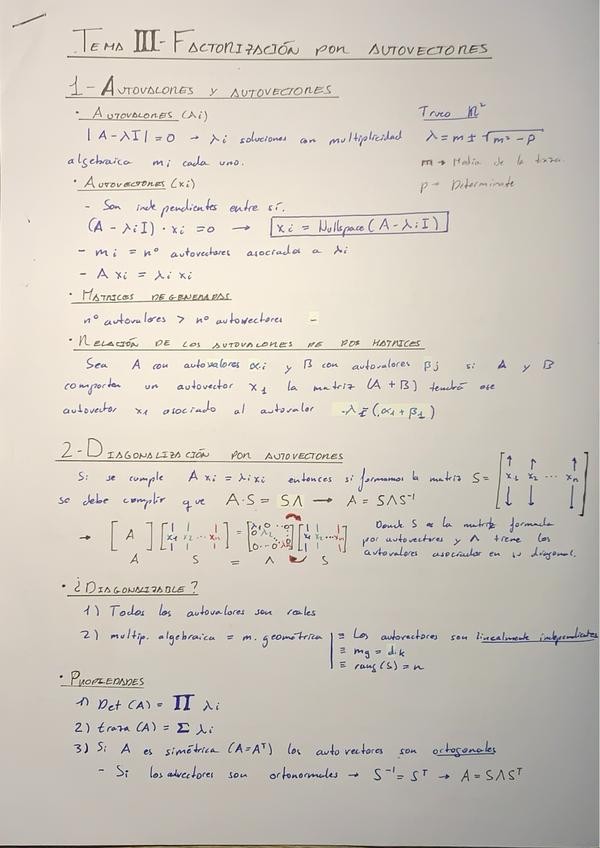 TEMA III - FACTORIZACIÓN POR AUTOVECTORES
1 - AUTOVALORES Y AUTOVECTORES
· AUTOVALORES (λi)
Truco M²
|A-λI| = 0 → λi soluciones con multiplicidad
λ = m ± √m² - p
algebraica mi cada uno.
m → Media de la traza.
· AUTOVECTORES (xi)
p → Determinate
- Son independientes entre sí.
(A - λiI) · xi = 0 → xi = Nullspace (A - λiI)
- mi = nº autovectores asociados a λi
- A xi = λi xi
· MATRICES DEGENERADAS
nº autovalores > nº autovectores -
· RELACIÓN DE LOS AUTOVALORES DE DOS MATRICES
Sea A con autovalores αi y B con autovalores βj si A y B
comparten un autovector x1 la matriz (A + B) tendrá ese
autovector x1 asociado al autovalor (α1 + β1)
2 - DIAGONALIZACIÓN POR AUTOVECTORES
Si se cumple A xi = λi xi entonces si formamos la matriz S = [x1 x2 ... xn]
se debe cumplir que A·S = SΛ → A = SΛS⁻¹
→ [A] [x1 x2 ... xn] = [λ1 0 ·· 0 0 λ2 0 ·· 0 λn] [x1 x2 ... xn]
Donde S es la matriz formada
por autovectores y Λ tiene los
autovalores asociados en su diagonal.
A S = Λ S
· ¿DIAGONALIZABLE?
1) Todos los autovalores son reales
2) multip. algebraica = m. geométrica ≡ Los autovectores son linealmente independientes
≡ mg = dik
≡ rang(S) = n
· PROPIEDADES
1) Det (A) = Π λi
2) traza (A) = Σ λi
3) Si A es simétrica (A=Aᵀ) los autovectores son octogonales
- Si los advectores son ortonormales → S⁻¹ = Sᵀ → A = SΛSᵀ